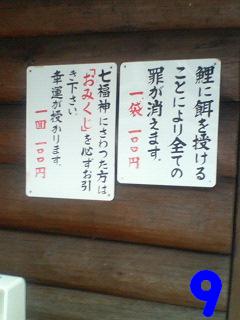 鯉に餌を授ける
ことにより全ての
罪が消えます。
一袋 一〇〇円
七福神にさわった方は、
「おみくじ」を必ずお引
き下さい。
幸運が授かります。
一回 一〇〇円
9